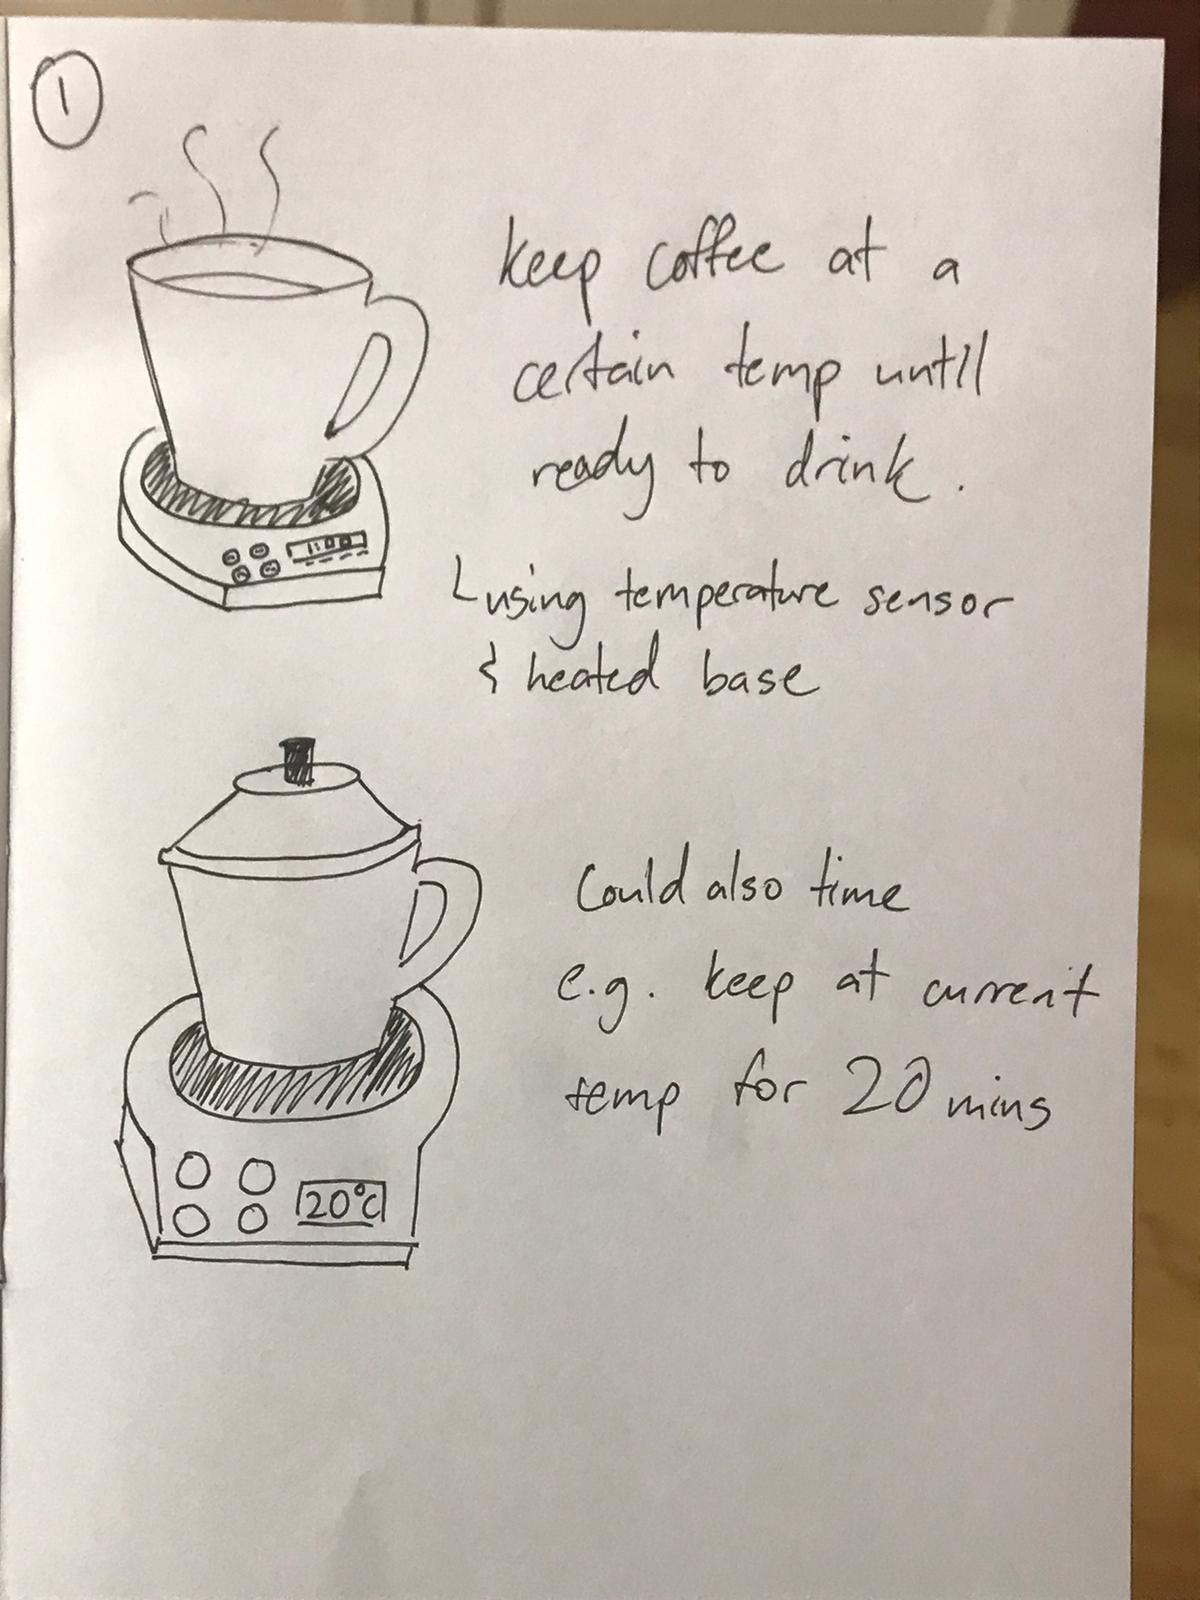 1
keep coffee at a
certain temp until
ready to drink.
using temperature sensor
& heated base
1:00
Could also time
e.g. keep at current
temp for 20 mins
20°C